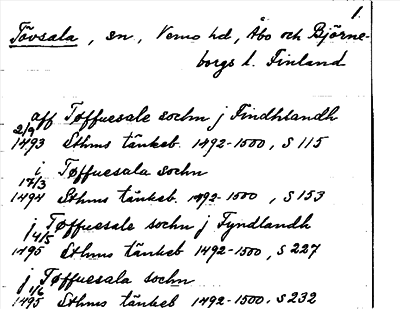 1.
Tövsala, sn, Vemo hd, Åbo och Björne-
borgs l. Finland
aff Tøffuesale sochn j Findhlandh
2/9 1493 Sthms tänkeb. 1492-1500, S 115
i Tøffuesala sochn
17/3 1494 Sthms tänkeb. 1492-1500, S 153
j Tøffuesale sochn j Fyndlandh
4/5 1495 Sthms tänkeb 1492-1500, S 227
j Tøffuesala sochn
1/6 1495 Sthms tänkeb 1492-1500. S 232